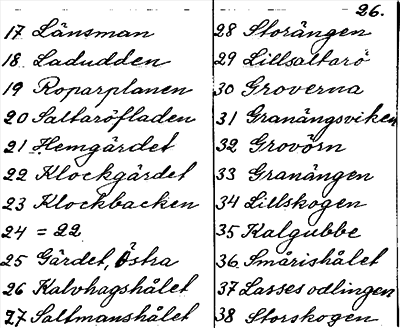 26.
17 Länsman
18 Ladudden
19 Roparplanen
20 Saltaröfladen
21 Hemgärdet
22 Klockgärdet
23 Klockbacken
24 = 22
25 Gärdet, Östra
26 Kalvhagshålet
27 Saltmanshålet
28 Storängen
29 Lillsaltarö
30 Groverna
31 Granängsviken
32 Grovörn
33 Granängen
34 Lillskogen
35 Kalgubbe
36 Smårishålet
37 Lasses odlingen
38 Storskogen